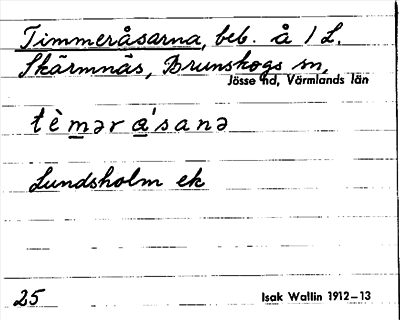 Timmeråsarna, beb. å 1 L.
Skärmnäs, Brunskogs sn,
Jösse hd, Värmlands län
tèmər a̲'sanə
Lundsholm ek
25 Isak Wallin 1912–13